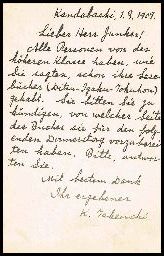 Kandabashi, 1. 9. 1909.
Lieber Herr Junker!
Alle Personen von der
höheren Klasse haben, wie
Sie sagten, schon ihre Lese-
bücher (Doitsu-Gaku-Tokuhon)
gehabt. Sie bitten Sie zu
kündigen, von welcher Seite
des Buches sie für den folg-
enden Donnerstag vorzuberei-
ten haben. Bitte, antwor-
ten Sie.
Mit bestem Dank
Ihr ergebener
K. Takenchi